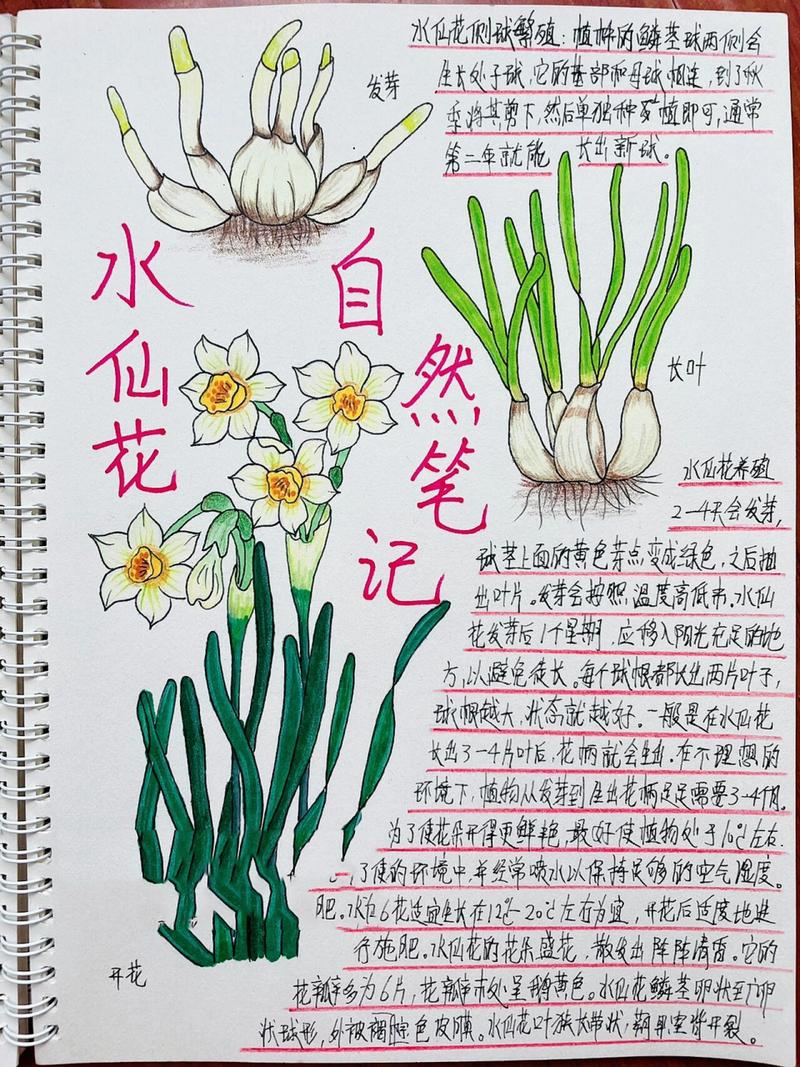 水仙花侧球繁殖：植株的鳞茎球两侧会
生长处子球，它的基部和母球相连，到了秋
季将其剪下，然后单独种植即可，通常
第二年就能 长出新球。
发芽
水仙花
自然笔记
长叶
水仙花养殖
2-4天会发芽，
球茎上面的黄色芽点变成绿色，之后抽
出叶片。发芽会按照温度高低而.水仙
花发芽后1个星期，应移入阳光充足的地
方，以避免徒长。每个球根都长出两片叶子，
球根越大，状态就越好。一般是在水仙花
长出3-4片叶后，花柄就会生出.在不理想的
环境下，植物从发芽到生出花柄足足需要3-4个月。
为了使花朵开得更鲜艳，最好使植物处于10℃左右.
了使的环境中，并经常喷水以保持足够的空气湿度。
肥。水仙花适宜生长在12℃-20℃左右为宜，开花后适度地进
行施肥。水仙花的花朵盛花，散发出阵阵清香。它的
花瓣多为6片，花瓣末处呈鹅黄色。水仙花鳞茎卵状至广卵
状球形，外被褐棕色皮膜。水仙花叶狭长带状，蒴果室背开裂。
开花